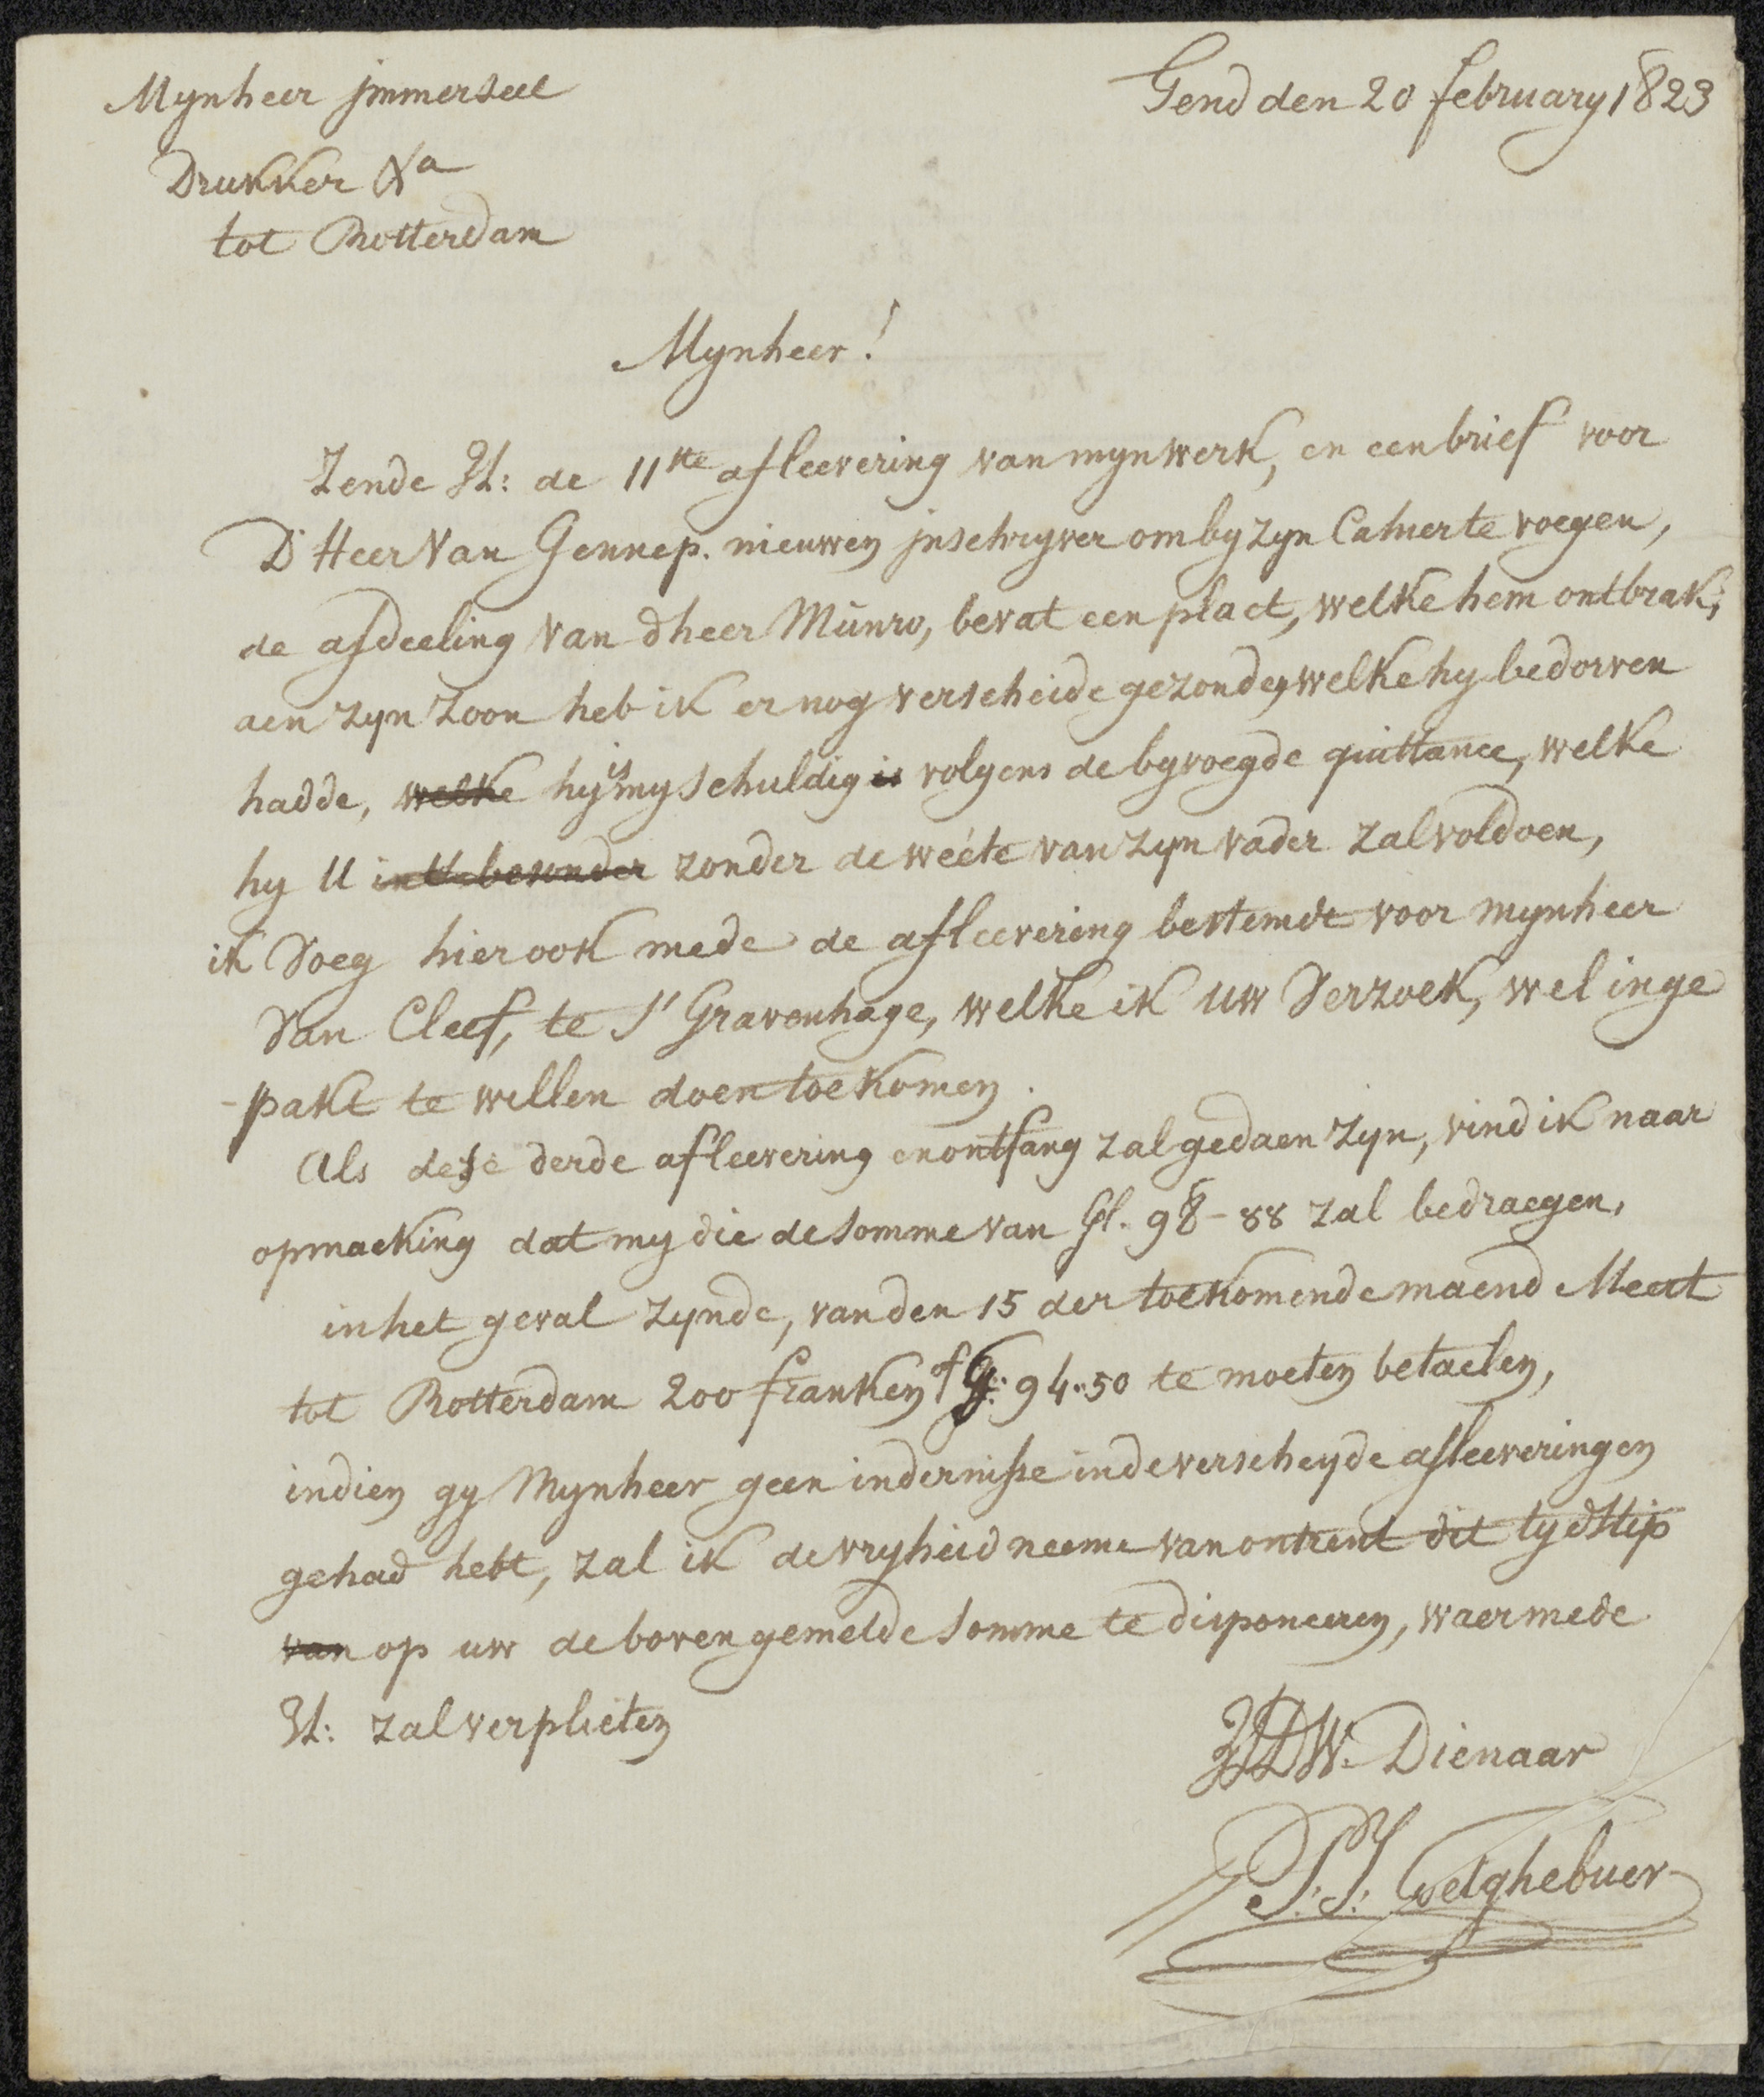 Mynheer jmmerseel
Gend den 20 february 1823
Drukker &a
tot Rotterdam
Mynheer!
Zende Ul: de 11ste afleevering van myn werk, en een brief voor
D'Heer Van Gennep. nieuwen jnschryver om by zyn Cahier te voegen,
de afdeeling van dheer Munro, bevat een plaet, welke hem ontbrak;
aen zyn zoon heb ik er nog verscheide gezonden welke hy bedorven
hadde, welke hy is my schuldig is volgens de byvoegde quittance, welke
hy U in't besonder zonder de weéte van zyn vader zal voldoen,
ik Voeg hier ook mede de afleevering bestemdt voor Mynheer
Van Cleef, te S' Gravenhage, welke ik uw Verzoek, wel inge
-pakt te willen doen toekomen.
Als dese derde afleevering en ontfang zal gedaen zyn, vind ik naar
opmaeking dat my die de somme van Gl. 98-88 zal bedraegen,
in het geval zynde, van den 15 der toekomende maend Meert
tot Rotterdam 200 franken of G: 94..50 te moeten betaelen,
indien gy Mynheer geen indernisse in de verscheyde afleeveringen
gehad hebt, zal ik de vryheid neeme van ontrent dit tydstip
van op uw de boven gemelde somme te disponeeren, waermede
Ul: zal verplieten
UEDW. Dienaar
P.J. Goetghebuer